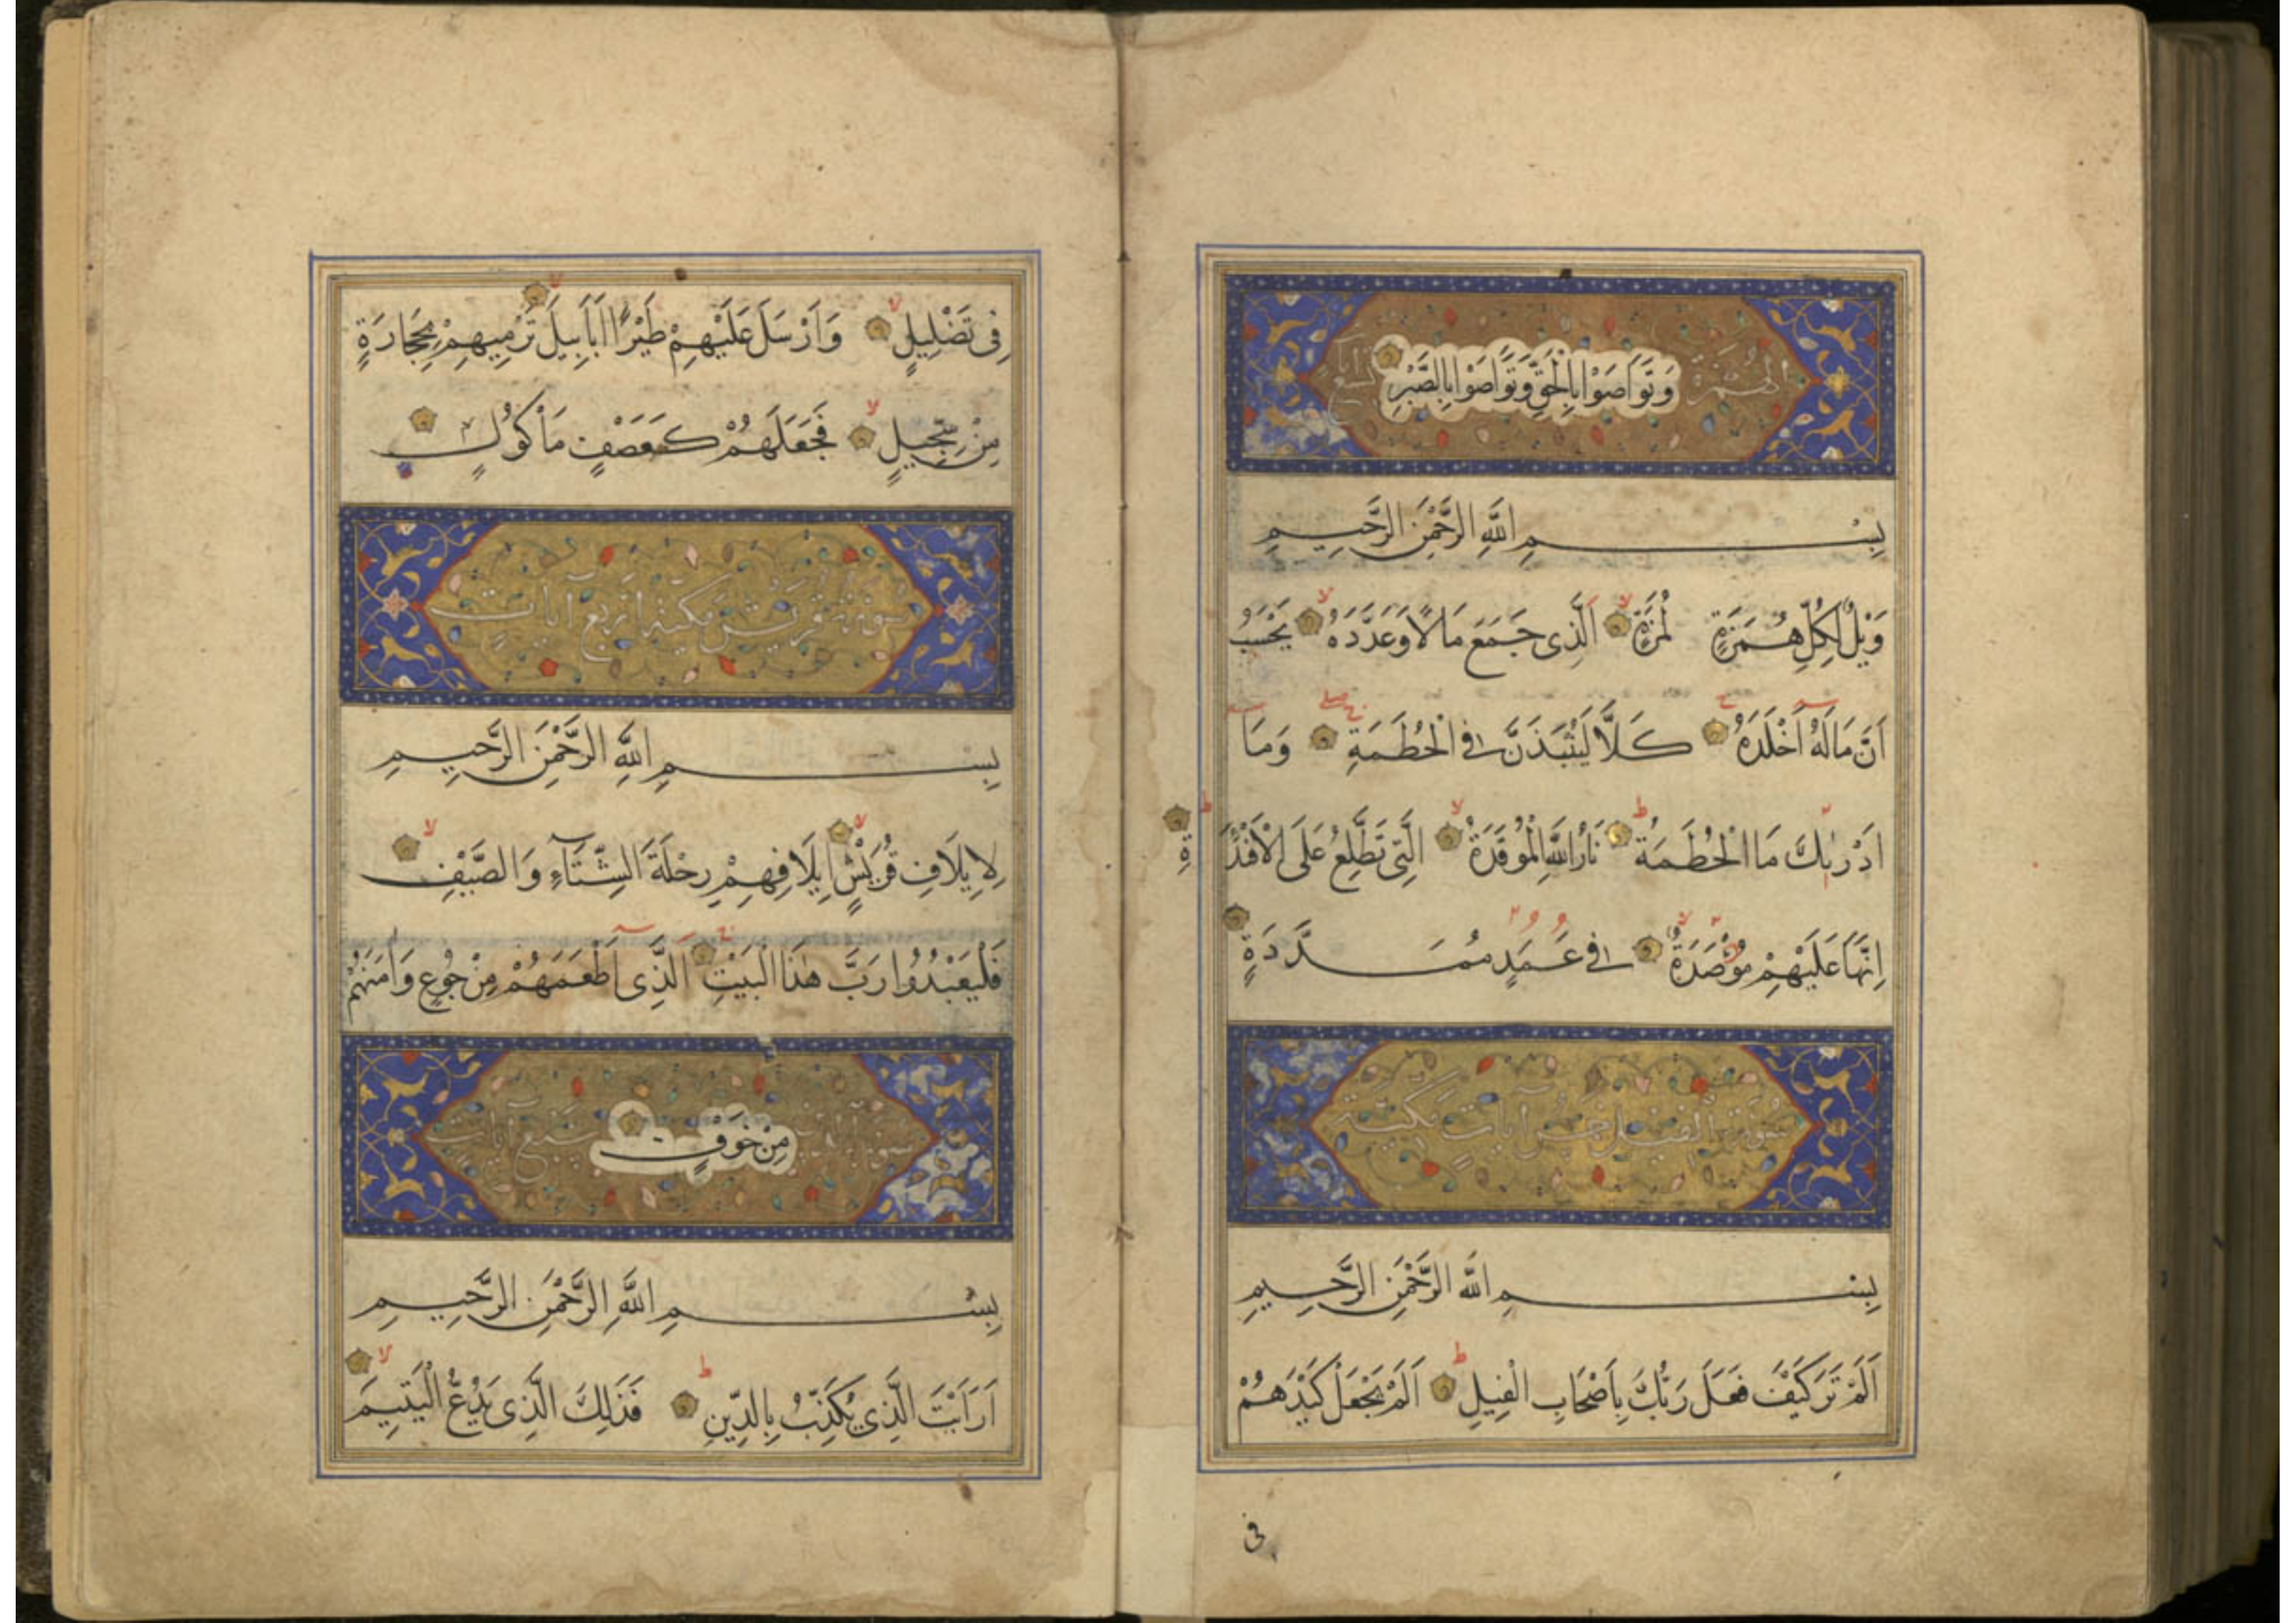 وَتَوَاصَوْا بِالْحَقِّ وَتَوَاصَوْا بِالصَّبْرِ
بِسْمِ اللَّهِ الرَّحْمَنِ الرَّحِيمِ
وَيْلٌ لِكُلِّ هُمَزَةٍ لُمَزَةٍ اَلَّذِى جَمَعَ مَالًا وَعَدَّدَهُ يَحْسَبُ
اَنَّ مَالَهُ اَخْلَدَهُ كَلَّا لَيُنْبَذَنَّ فِى الْحُطَمَةِ وَمَا
اَدْرٰيكَ مَا الْحُطَمَةُ نَارُ اللَّهِ الْمُوقَدَةُ الَّتِى تَطَّلِعُ عَلَى الْاَفْئِدَةِ
اِنَّهَا عَلَيْهِمْ مُؤْصَدَةٌ فِى عَمَدٍ مُمَدَّدَةٍ
سورة الفيل خمس آيات مكية
بِسْمِ اللَّهِ الرَّحْمَنِ الرَّحِيمِ
اَلَمْ تَرَ كَيْفَ فَعَلَ رَبُّكَ بِاَصْحَابِ الْفِيلِ اَلَمْ يَجْعَلْ كَيْدَهُمْ
فى
فِى تَضْلِيلٍ وَاَرْسَلَ عَلَيْهِمْ طَيْرًا اَبَابِيلَ تَرْمِيهِمْ بِحِجَارَةٍ
مِنْ سِجِّيلٍ فَجَعَلَهُمْ كَعَصْفٍ مَأْكُولٍ
سورة قريش مكية اربع آيات
بِسْمِ اللَّهِ الرَّحْمَنِ الرَّحِيمِ
لِاِيلَافِ قُرَيْشٍ اِيلَافِهِمْ رِحْلَةَ الشِّتَآءِ وَالصَّيْفِ
فَلْيَعْبُدُوا رَبَّ هٰذَا الْبَيْتِ اَلَّذِى اَطْعَمَهُمْ مِنْ جُوعٍ وَاٰمَنَهُمْ
مِنْ خَوْفٍ
بِسْمِ اللَّهِ الرَّحْمَنِ الرَّحِيمِ
اَرَاَيْتَ الَّذِى يُكَذِّبُ بِالدِّينِ فَذٰلِكَ الَّذِى يَدُعُّ الْيَتِيمَ